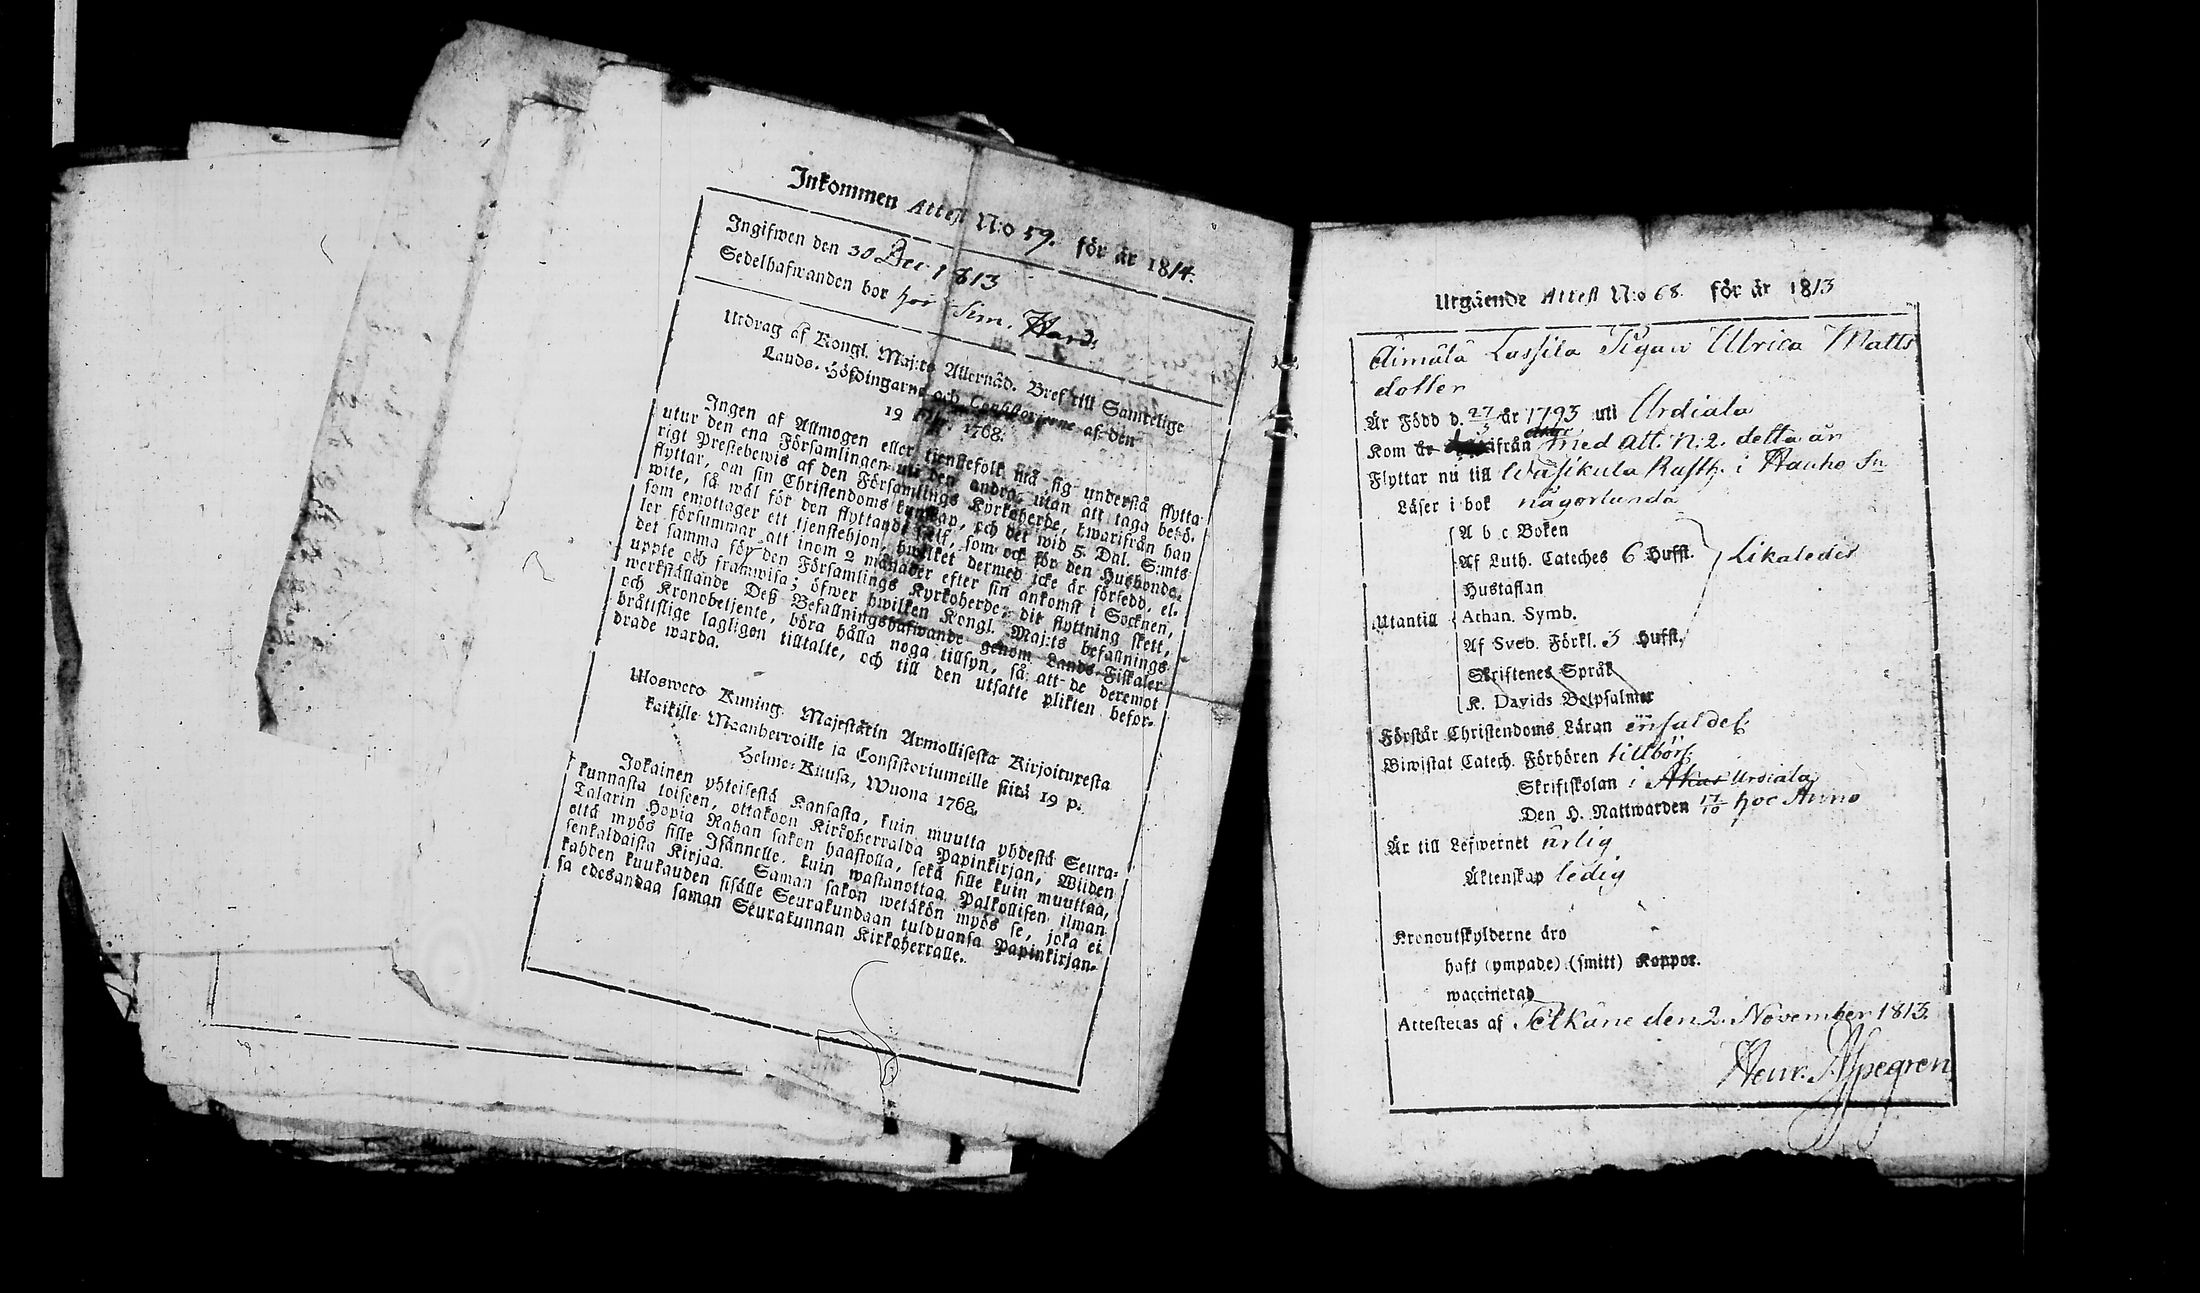 Inkommen Attest N:o 59. för år 1814.
Ingifwen den 30 Dec. 1813
Sedelhafwanden bor hos Sim. Hard:
Utdrag af Kongl. Maj:ts Allernåd. Bref till Samtelige
Lands-Höfdingarne och Consistorierne af den
19 1768.
Ingen af Allmogen eller tjenstefolk må sig understå flytta
utur den ena Församlingen uti den andra, utan att taga behö-
rigt Prestebewis af den Församlings Kyrkoherde, hwarifrån han
flyttar, om sin Christendoms kunskap, och det wid 5 Dal. S:mts
wite, så wäl för den flyttande sielf, som ock för den Husbonde,
som emottager ett tjenstehjon, hwilket dermed icke är försedd, el-
ler försummar att inom 2 månader efter sin ankomst i Socknen,
det samma för den Församlings Kyrkoherde, dit flyttning skett,
uppte och framwisa; öfwer hwilken Kongl. Maj:ts befallnings
werkställande Deß Befallningshafwande genom Lands-Fiskaler
och Kronobetjente, böra hålla noga tillsyn, så att de deremot
bråttslige lagligen tilltalte, och till den utsatte plikten befor-
drade warda.
Uloswero Kuning. Majestätin Armollisesta Kirjoituxesta
kaikille Maanherroille ja Consistoriumeille siitä 19 p.
Helme-Kuusa, Wuona 1768.
Jokainen yhteisestä Kansasta, kuin muutta yhdestä Seura-
kunnasta toiseen, ottakoon Kirkoherralda Papinkirjan, Wiiden
Talarin Hopia Rahan sakon haastolla, sekä sille kuin muuttaa,
että myös sille Isännelle, kuin wastanottaa Palkollisen ilman
senkaldaista Kirjaa. Saman sakon wetäkön myös se, joka ei
kahden kuukauden sisälle Seurakundaan tulduansa Papinkirjan-
sa edesandaa saman Seurakunnan Kirkoherralle.
Utgående Attest N:o 68. för år 1813
Äimälä Lassila Pigan Ulrica Matts
dotter
Är Född d. 27/5 år 1793 uti Urdiala
Kom år ifrån Akas med att. N:2. detta år
Flyttar nu till Wasikula Rusth. i Hauho Sn
Läser i bok någorlunda
A b c Boken
Af Luth. Cateches 6 Hufst. Likaledes
Hustaflan
Utantill Athan. Symb.
Af Sveb. Förkl. 3 Hufst.
Skriftenes Språk
K. Davids Botpsalmer
Förstår Christendoms Läran enfaldel.
Biwistat Catech. Förhören tillbörl.
Skriftskolan i Akas Urdiala
Den H. Nattwarden 17/10 hoc Anno
Är till Lefwernet ärlig
Äktenskap ledig
Kronoutskylderne äro
haft (ympade) (smitt) Koppor.
waccinerad
Attesteras af Pelkäne den 2. November 1813.
Henr. Aspegren